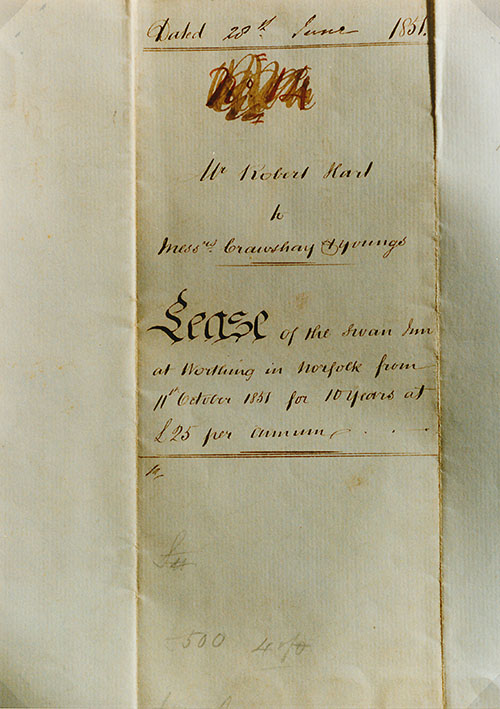 Dated 28th June 1851.
No. 14
Mr Robert Hart
to
Messrs Crawshay & Youngs
Lease of the Swan Inn
at Worthing in Norfolk from
11th October 1851 for 10 Years at
£25 per annum
500 4